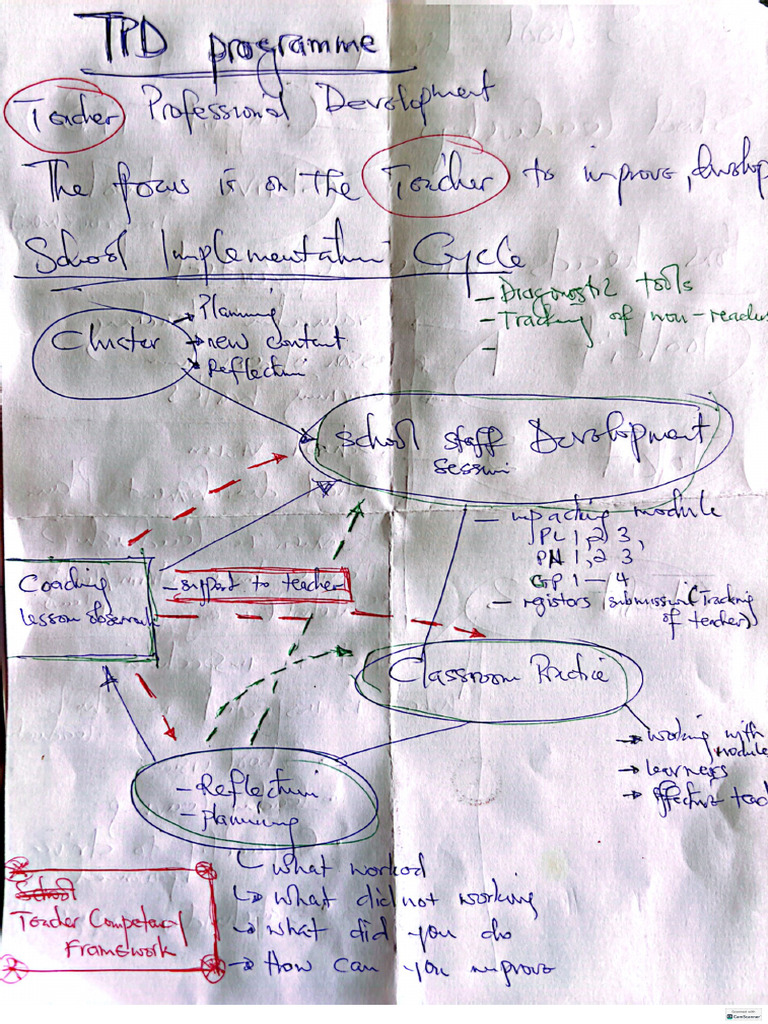 TPD programme
Teacher Professional Development
The focus is on the Teacher to improve, develop
School Implementation Cycle
- Diagnostic tools
- Tracking of non-readers
-
Cluster
→ Planning
→ new content
→ Reflection
School staff Development
session
- unpacking module
PL 1, 2 3,
PN 1, 2 3
GP 1 - 4
- registors submission (Tracking
of teacher)
Coaching
lesson observati
- support to teacher
Classroom Practice
→ working with
module
→ learners
→ effective teac
- Reflection
- planning
what worked
→ what did not working
→ what did you do
→ How can you improve
School
Teacher Competency
Framework
CamScanner